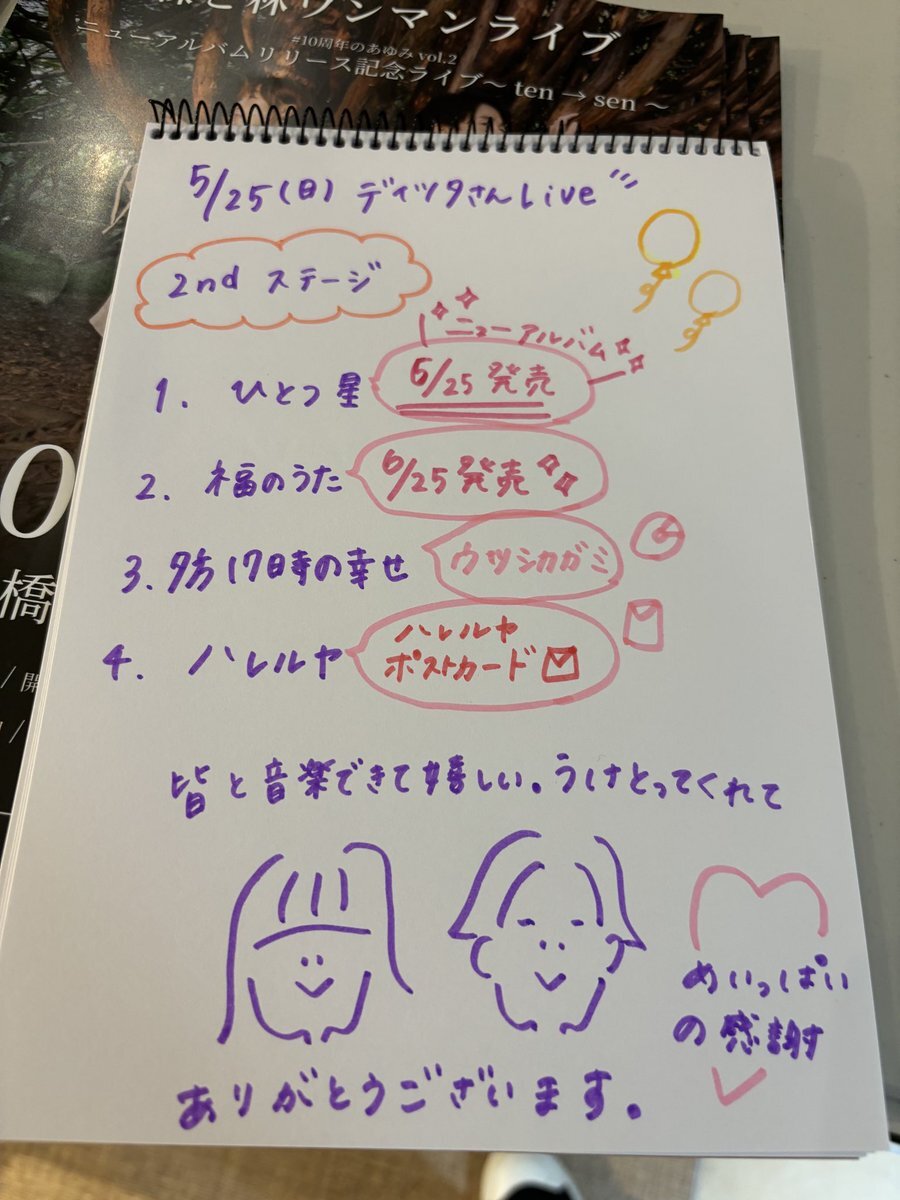 と森ワンマンライブ
#10周年のあゆみ vol.2
ニューアルバムリリース記念ライブ～ ten → sen ～
5/25(日) ディツタさんLive
2nd ステージ
ニューアルバム
1. ひとつ星 6/25 発売
2. 福のうた 6/25 発売
3. 夕方17時の幸せ ウツシカガミ
4. ハレルヤ ハレルヤ
ポストカード
皆と音楽できて嬉しい。うけとってくれて
めいっぱい
の感謝
ありがとうございます。
0
橋
/ 開